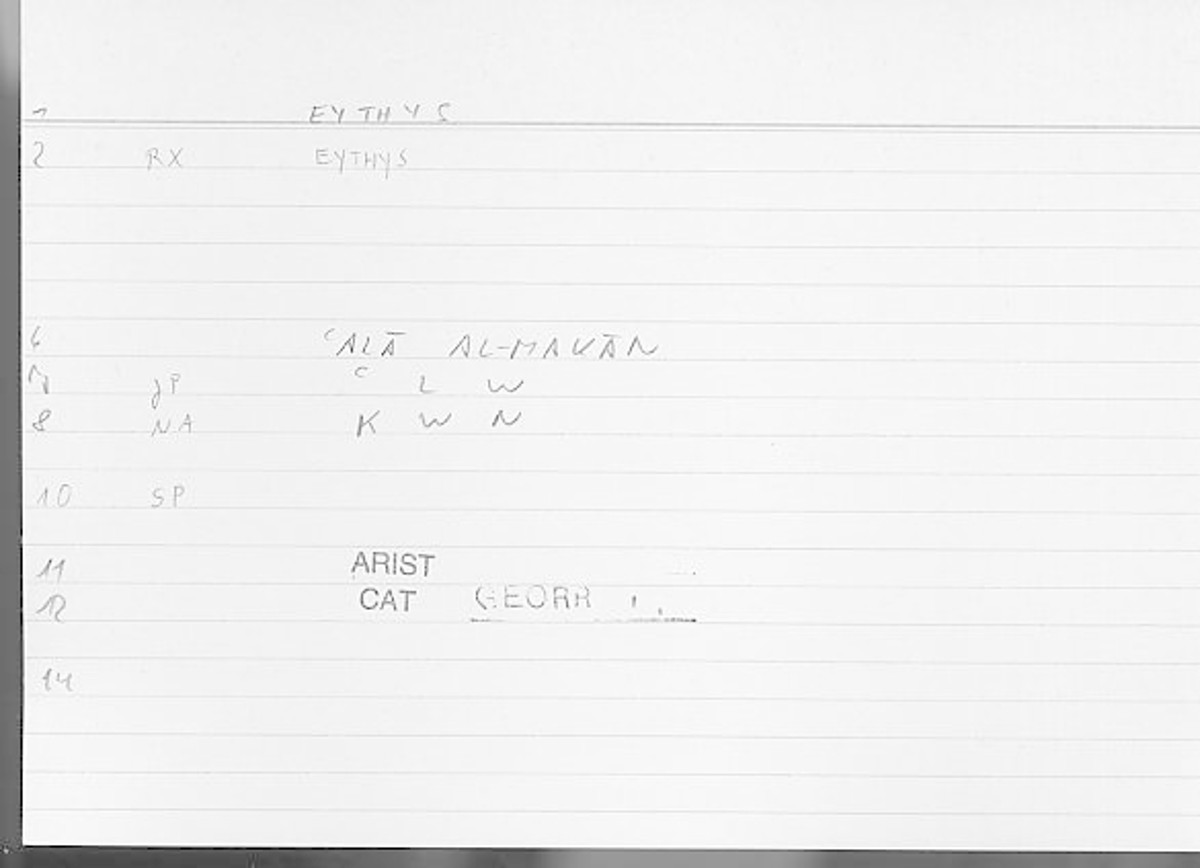 1 EYTHYS
2 RX EYTHYS
6 ʿALĀ AL-MAKĀN
7 JP ʿ L W
8 NA K W N
10 SP
11 ARIST
12 CAT GEORR
14